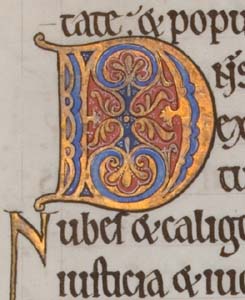 tate & popu
Dijs
ex
tu
Nubes & calig
iusticia & iu